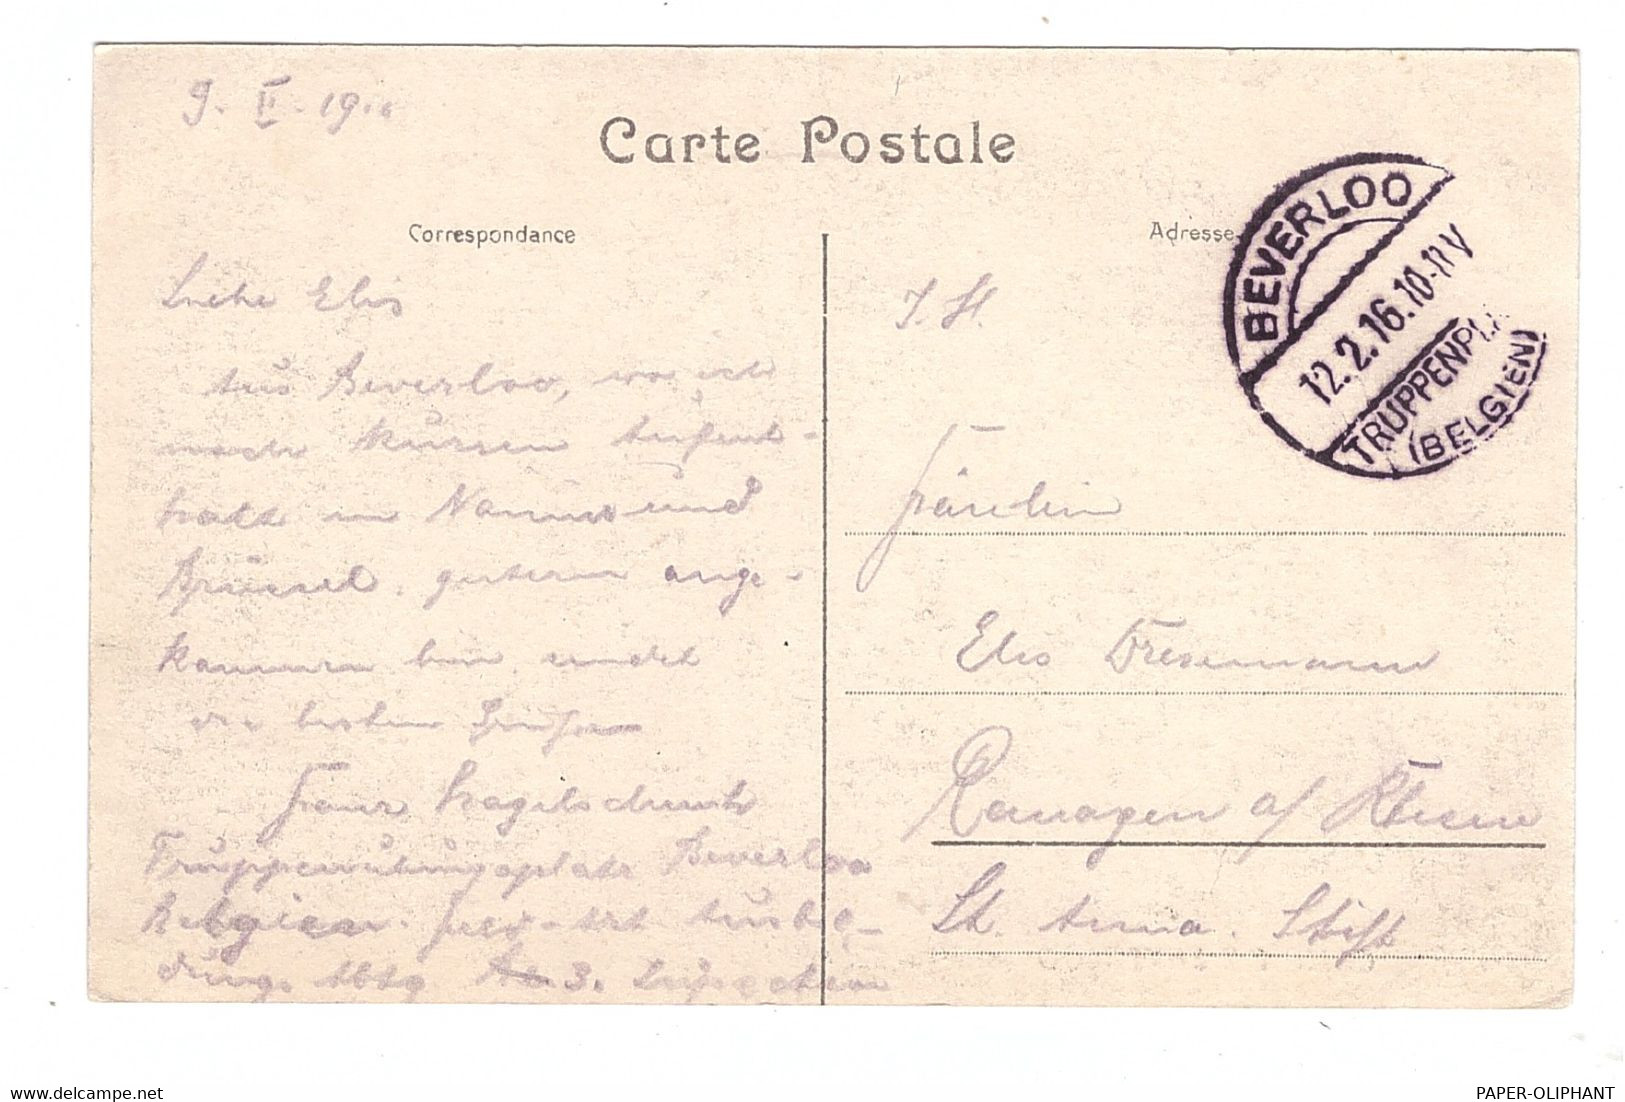 9. II. 19
Carte Postale
Correspondance
Adresse
BEVERLOO
12.2.16.10-11V
TRUPPENPLA
(BELGIEN)
Liebe Elis
Aus Beverloo, wo ich
nach kurzen Aufent-
halt in Namur und
Brüssel. gestern ange-
kommen bin sendet
die besten Grüße
Franz
Truppenübungsplatz Beverloo
Belgien. Feld-Art Ausbil-
dung. Abtg 3.
Fräulein
Elis
Remagen a/ Rhein
St. Anna. Stift
PAPER-OLIPHANT